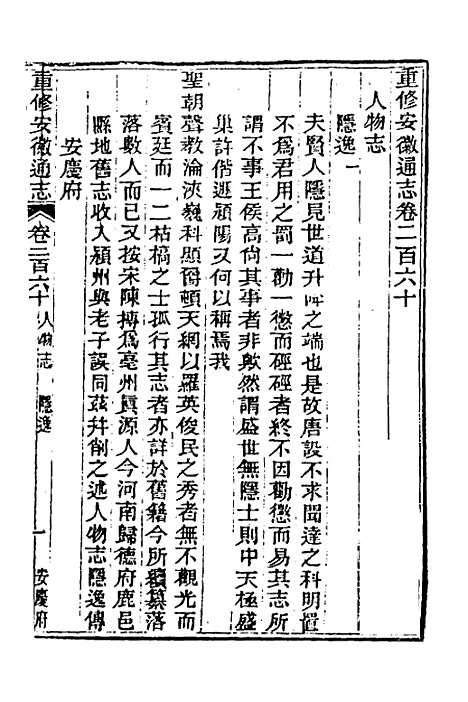 重修安徽通志卷二百六十
人物志
隱逸一
夫賢人隱見世道升降之端也是故唐設不求聞達之科明置
不爲君用之罰一勸一懲而硜硜者終不因勸懲而易其志所
謂不事王侯高尚其事者非歟然謂盛世無隱士則中天極盛
巢許偕遯潁陽又何以稱焉我
聖朝聲教淪浹巍科顯爵頓天網以羅英俊民之秀者無不觀光而
賓廷而一二枯槁之士孤行其志者亦詳於舊籍今所續纂落
落數人而已又按宋陳摶爲亳州眞源人今河南歸德府鹿邑
縣地舊志收入潁州與老子誤同茲幷削之述人物志隱逸傳
安慶府
重修安徽通志
卷二百六十
人物志
隱逸
一
安慶府